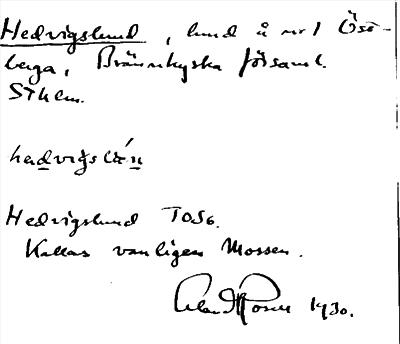 Hedvigslund, lund å nr 1 Öst-
berga, Brännkyrka församl.
Sthlm.
Hedvigslund TOSG.
Kallas vanligen Mossen.
1930.